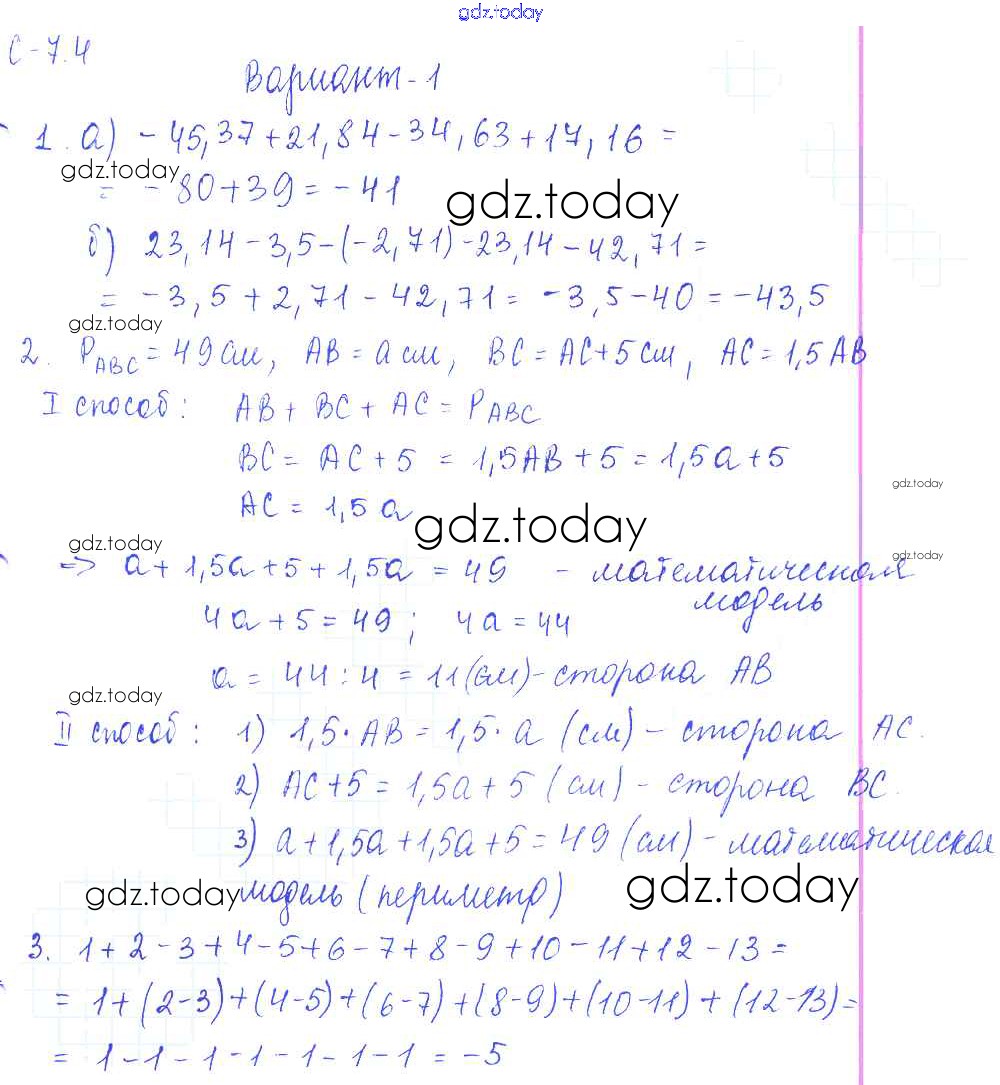 gdz.today
С-7.4
Вариант-1
1. а) -45,37+21,84-34,63+17,16=
gdz.today
= -80+39=-41 gdz.today
б) 23,14-3,5-(-2,71)-23,14-42,71=
= -3,5+2,71-42,71= -3,5-40=-43,5
gdz.today
2. P_ABC=49см, AB=a см, BC=AC+5см, AC=1,5AB
I способ: AB+BC+AC=P_ABC
BC=AC+5=1,5AB+5=1,5a+5
gdz.today
AC=1,5a gdz.today
gdz.today gdz.today
=> a+1,5a+5+1,5a=49 - математическая
модель
4a+5=49; 4a=44
a=44:4=11(см)-сторона AB
gdz.today
II способ: 1) 1,5·AB=1,5·a (см)-сторона AC.
2) AC+5=1,5a+5 (см)-сторона BC.
3) a+1,5a+1,5a+5=49 (см)-математическая
gdz.today модель (периметр) gdz.today
3. 1+2-3+4-5+6-7+8-9+10-11+12-13=
= 1+(2-3)+(4-5)+(6-7)+(8-9)+(10-11)+(12-13)=
= 1-1-1-1-1-1-1=-5